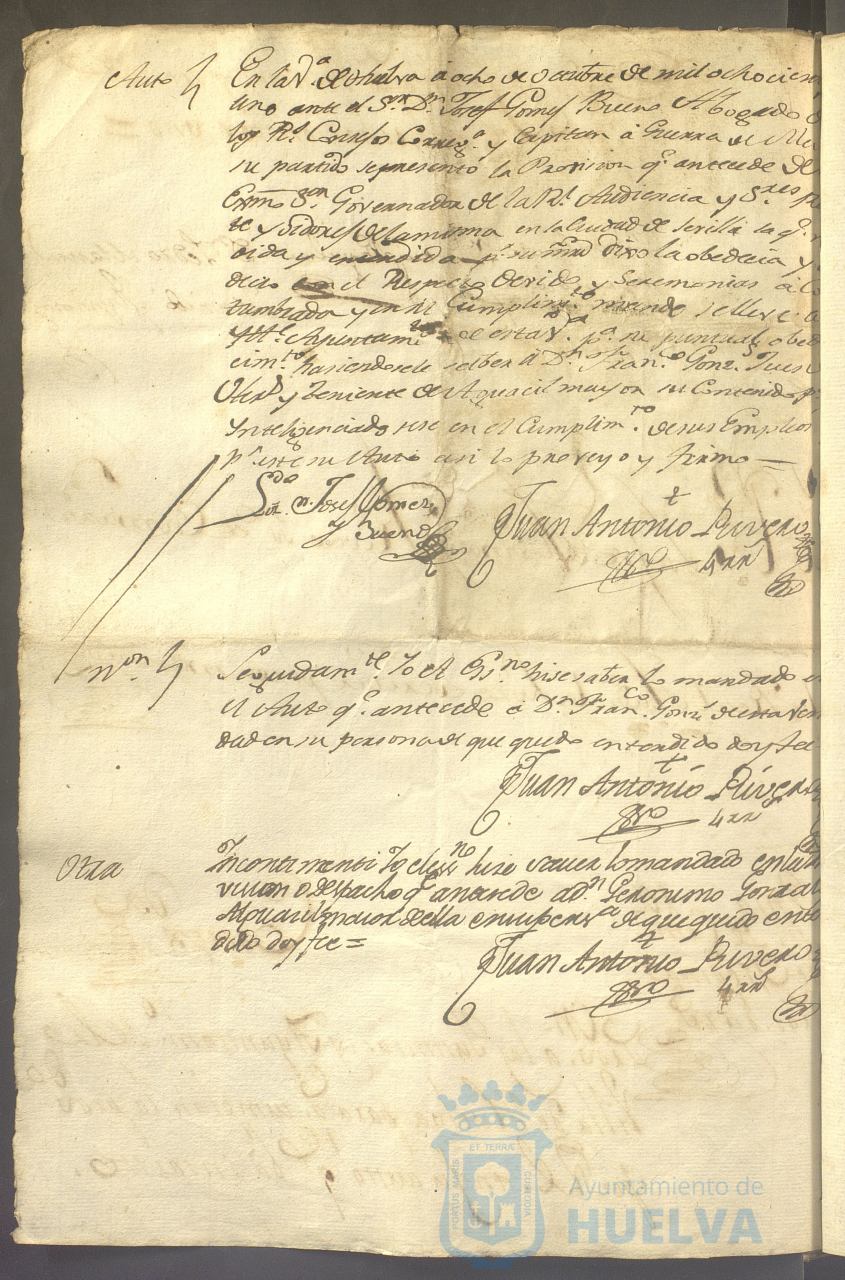 Auto En la V.ª de Huelva á ocho de Octubre de mil ochocien
uno ante el S.or D.n Josef Gomes Bueno Abogado
los R.s Consejos Correg.r y Capitan á Guerra de
su partido se presento la Provision q.e antecede de
Exmo S.or Governador de la R.l Audiencia y S.res
te y Oidores de la misma en la Ciudad de Sevilla la q.e
oida y entendida p.r su mrd Dixo la obedecia y
decio con el Respecto devido y Seremonias á
y en su Cumplim.to mando se lleve a
Ayuntam.to de esta V.ª p.ª su puntual obed
cim.to hasiendosele saber á D.n Fran.co Gonz.s
y Teniente de Aguacil mayor su Contenido p.
Ynteligenciado sese en el Cumplim.to de sus Empleos
p.r este su Auto asi lo proveyo y firmo
Lizdo D.n Josef Gomez
y Bueno
Juan Antonio Rivero
n.on Seguidam.te Yo el Es.no hise saber lo mandado e
el Auto q.e antecede á D.n Fran.co Gonz.s de esta Vecin
dad en su persona de que quedo entendido doy fee
Juan Antonio Rivero
Otra Incontinenti Yo el es.no hize saver lo mandado en la
vicion o despacho q.e antecede a d.n Geronimo Gonzal
Alguacil maior de ella en su pers.na de que quedo ente
dido doy fee =
Juan Antonio Rivero
PORTUS MARIS
ET TERRÆ
CUSTODIA
Ayuntamiento de
HUELVA